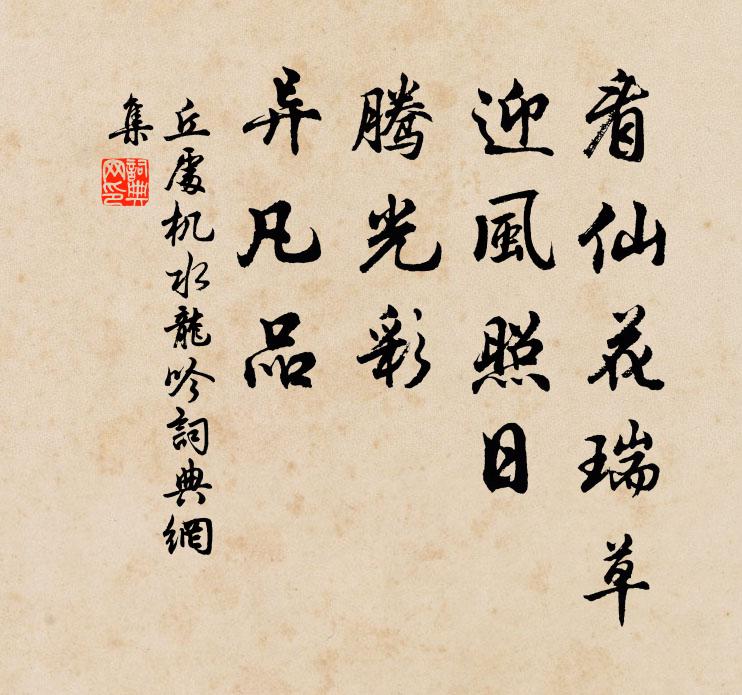 看仙花瑞草
迎風照日
腾光彩
异凡品
丘處机水龍吟詞典網
集
詞典
网印